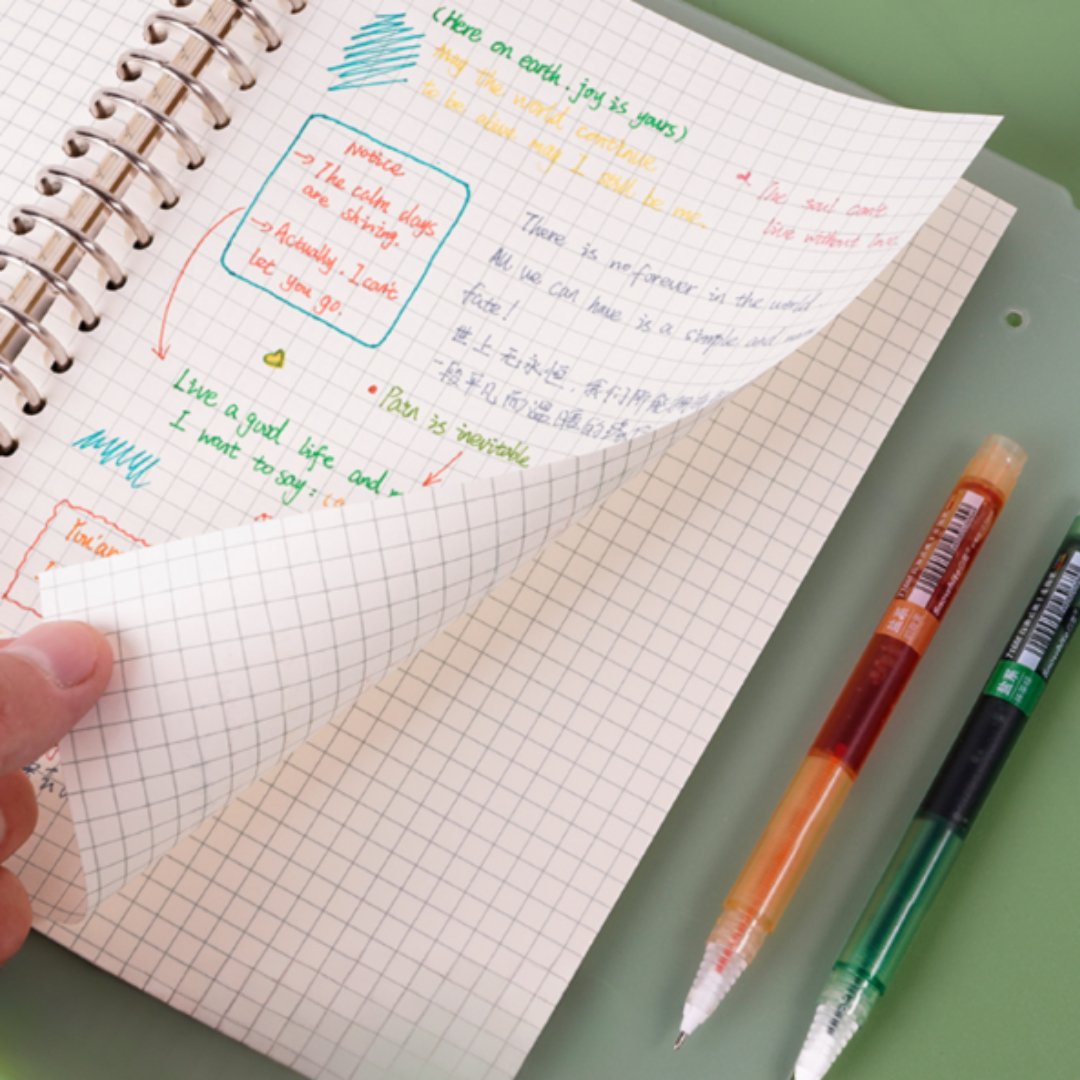 (Here on earth. joy is yours)
may the world continue
to be alive may I still be me.
The soul can't
live without love.
Notice
→ The calm days
are shining.
→ Actually. I can't
let you go.
There is no forever in the world
All we can have is a simple and
fate!
世上无永恒，我们所能拥
一段平凡而温暖的缘
Live a good life and
I want to say:
• Pain is inevitable
You're
盐系
盐系